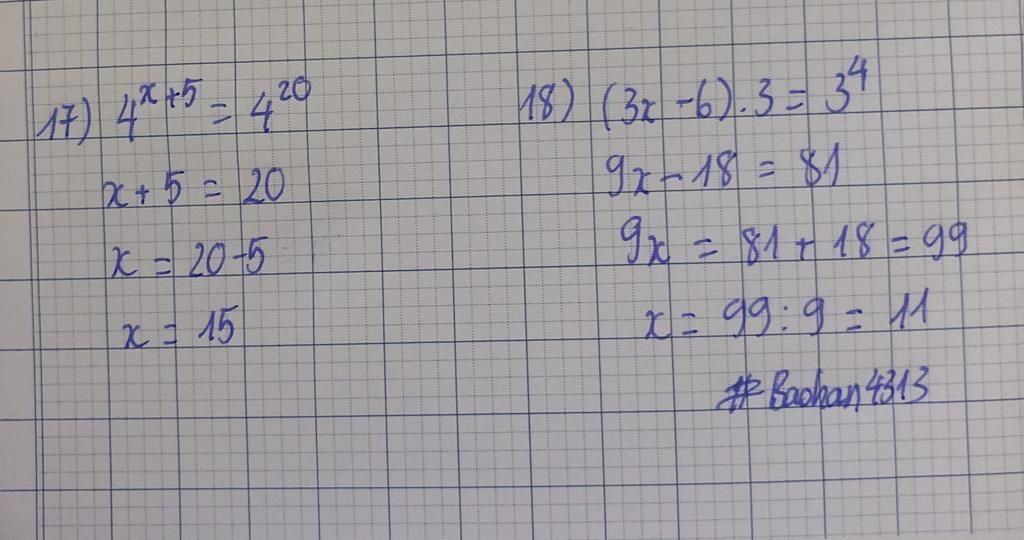 17) 4^{x+5} = 4^{20}
x + 5 = 20
x = 20-5
x = 15
18) (3x - 6).3 = 3^4
9x - 18 = 81
9x = 81 + 18 = 99
x = 99 : 9 = 11
# Baohan4313